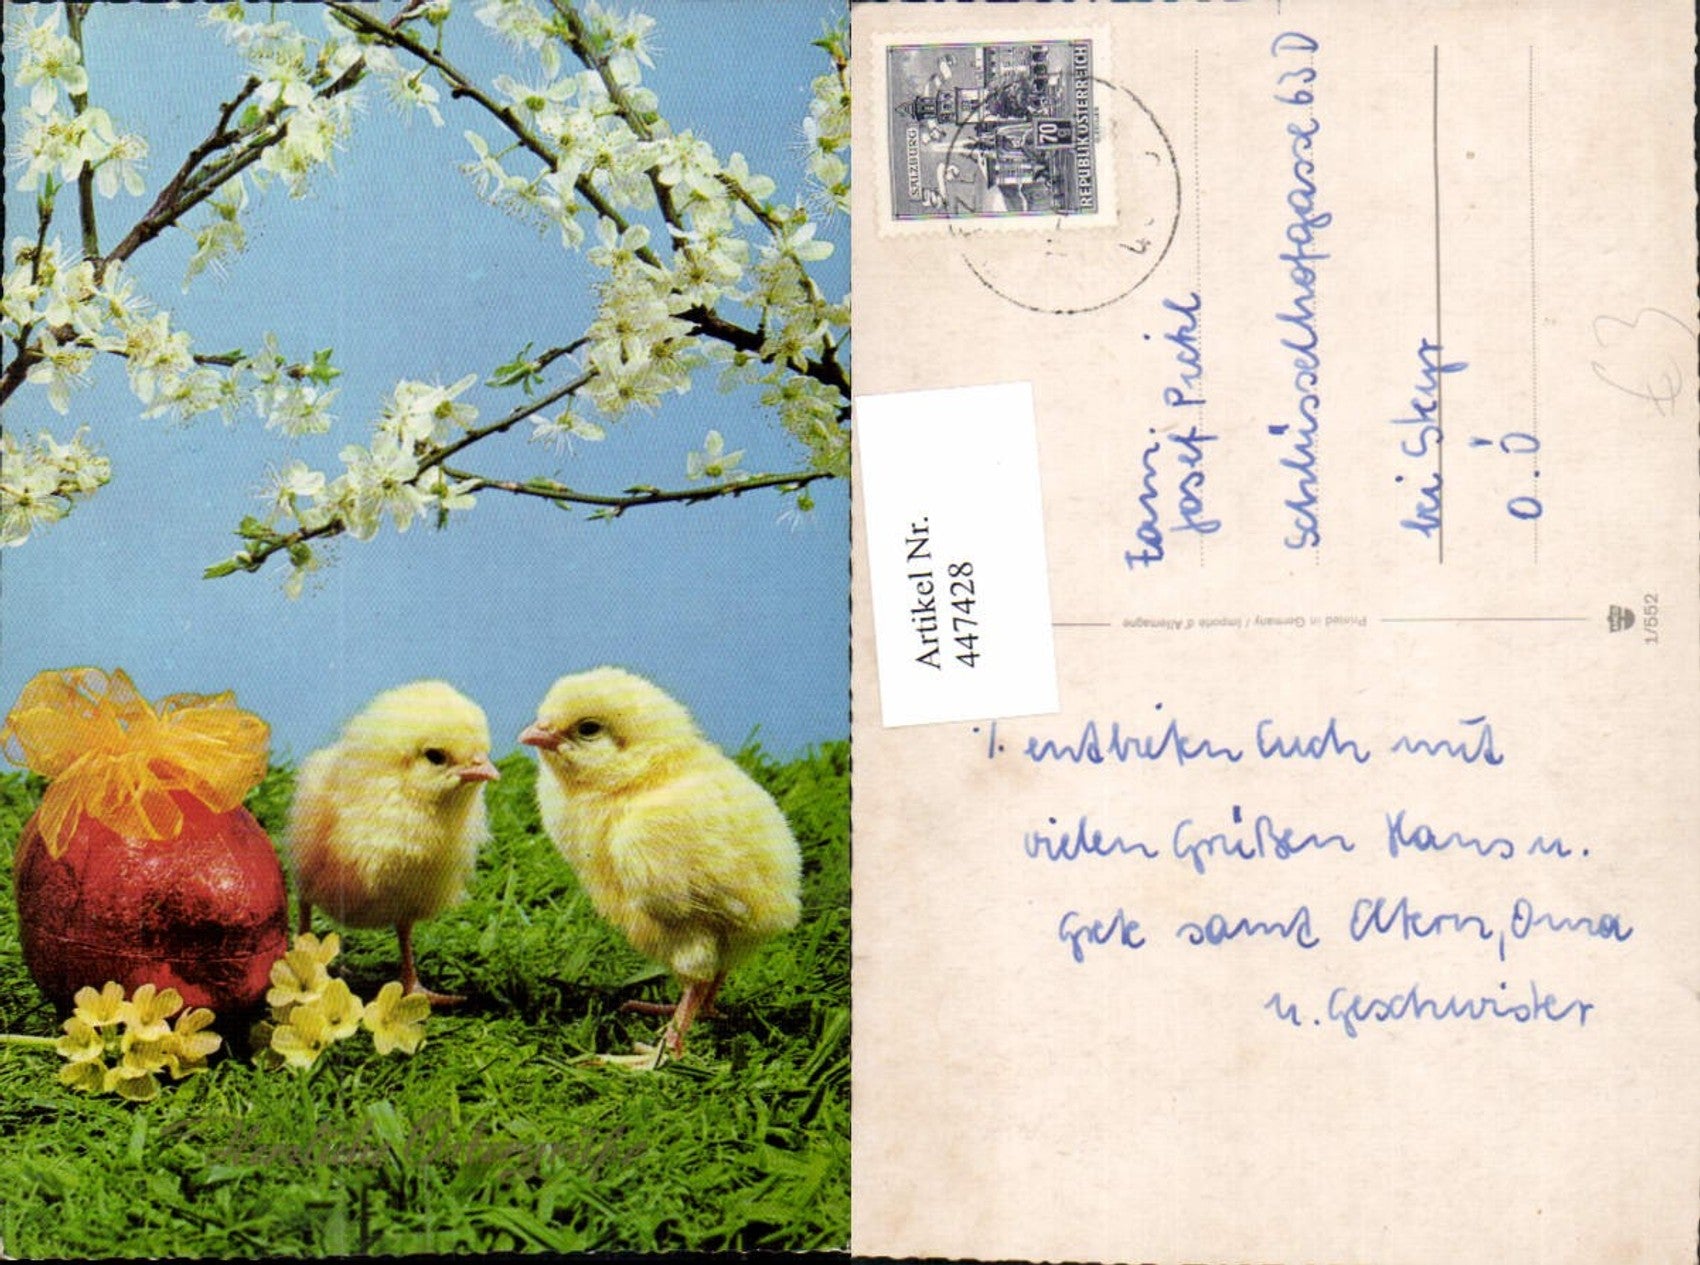 Herzliche Ostergrüße
SALZBURG
70
REPUBLIK ÖSTERREICH
Fam.
Josef Pickl
Schlüsselhofgasse 63 D
bei Steyr
O.Ö
€ 3
Artikel Nr.
447428
Printed in Germany / Importe d'Allemagne
1/552
·/. entbieten Euch mit
vielen Grüßen Hans u.
Grete samt Eltern, Oma
u. Geschwister